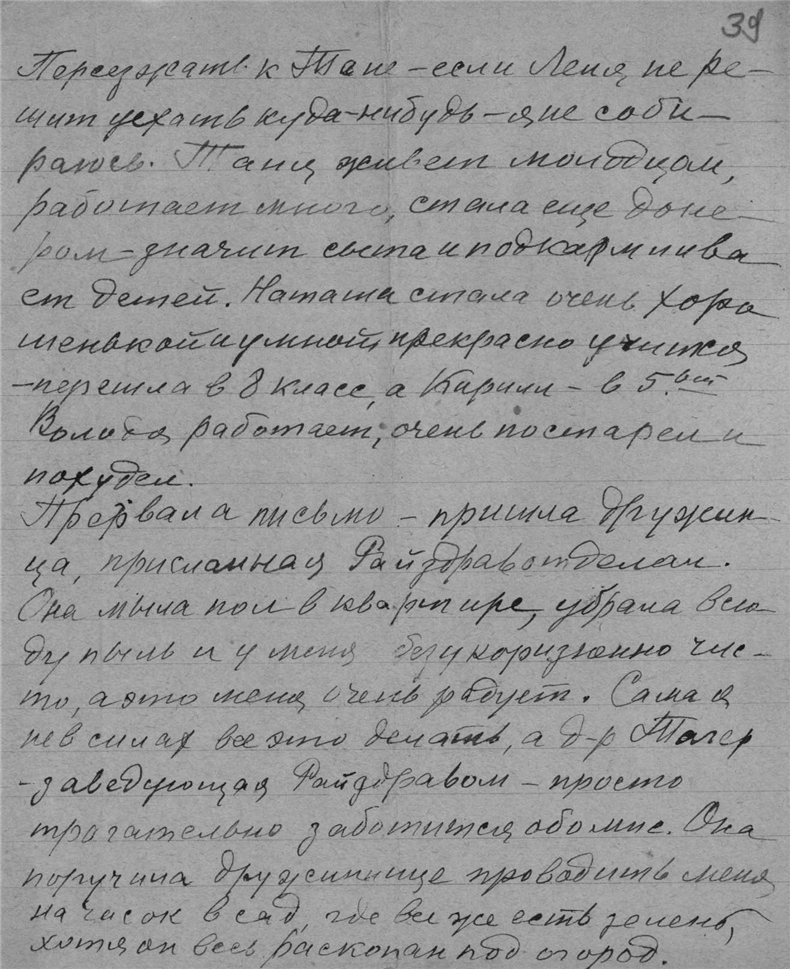 39
Переезжать к Тане – если Леня не ре–
шит уехать куда-нибудь – я не соби–
раюсь. Таня живет молодцом,
работает много, стала еще доно–
ром – значит сыта и подкармлива
ет детей. Наташа стала очень хоро
шенькой и умной, прекрасно учится
– перешла в 8 класс, а Кирилл – в 5.ый
Володя работает, очень постарел и
похудел.
Прервала письмо – пришла дружин–
ца, присланная Райздравотделом.
Она мыла пол в квартире, убрала всю
ду пыль и у меня безукоризненно чис–
то, а это меня очень радует. Сама я
не в силах все это делать, а д-р Тагер
– заведующая Райздравом – просто
трогательно заботится обо мне. Она
поручила дружиннице проводить меня
на часок в сад, где все же есть зелень,
хотя он весь раскопан под огород.